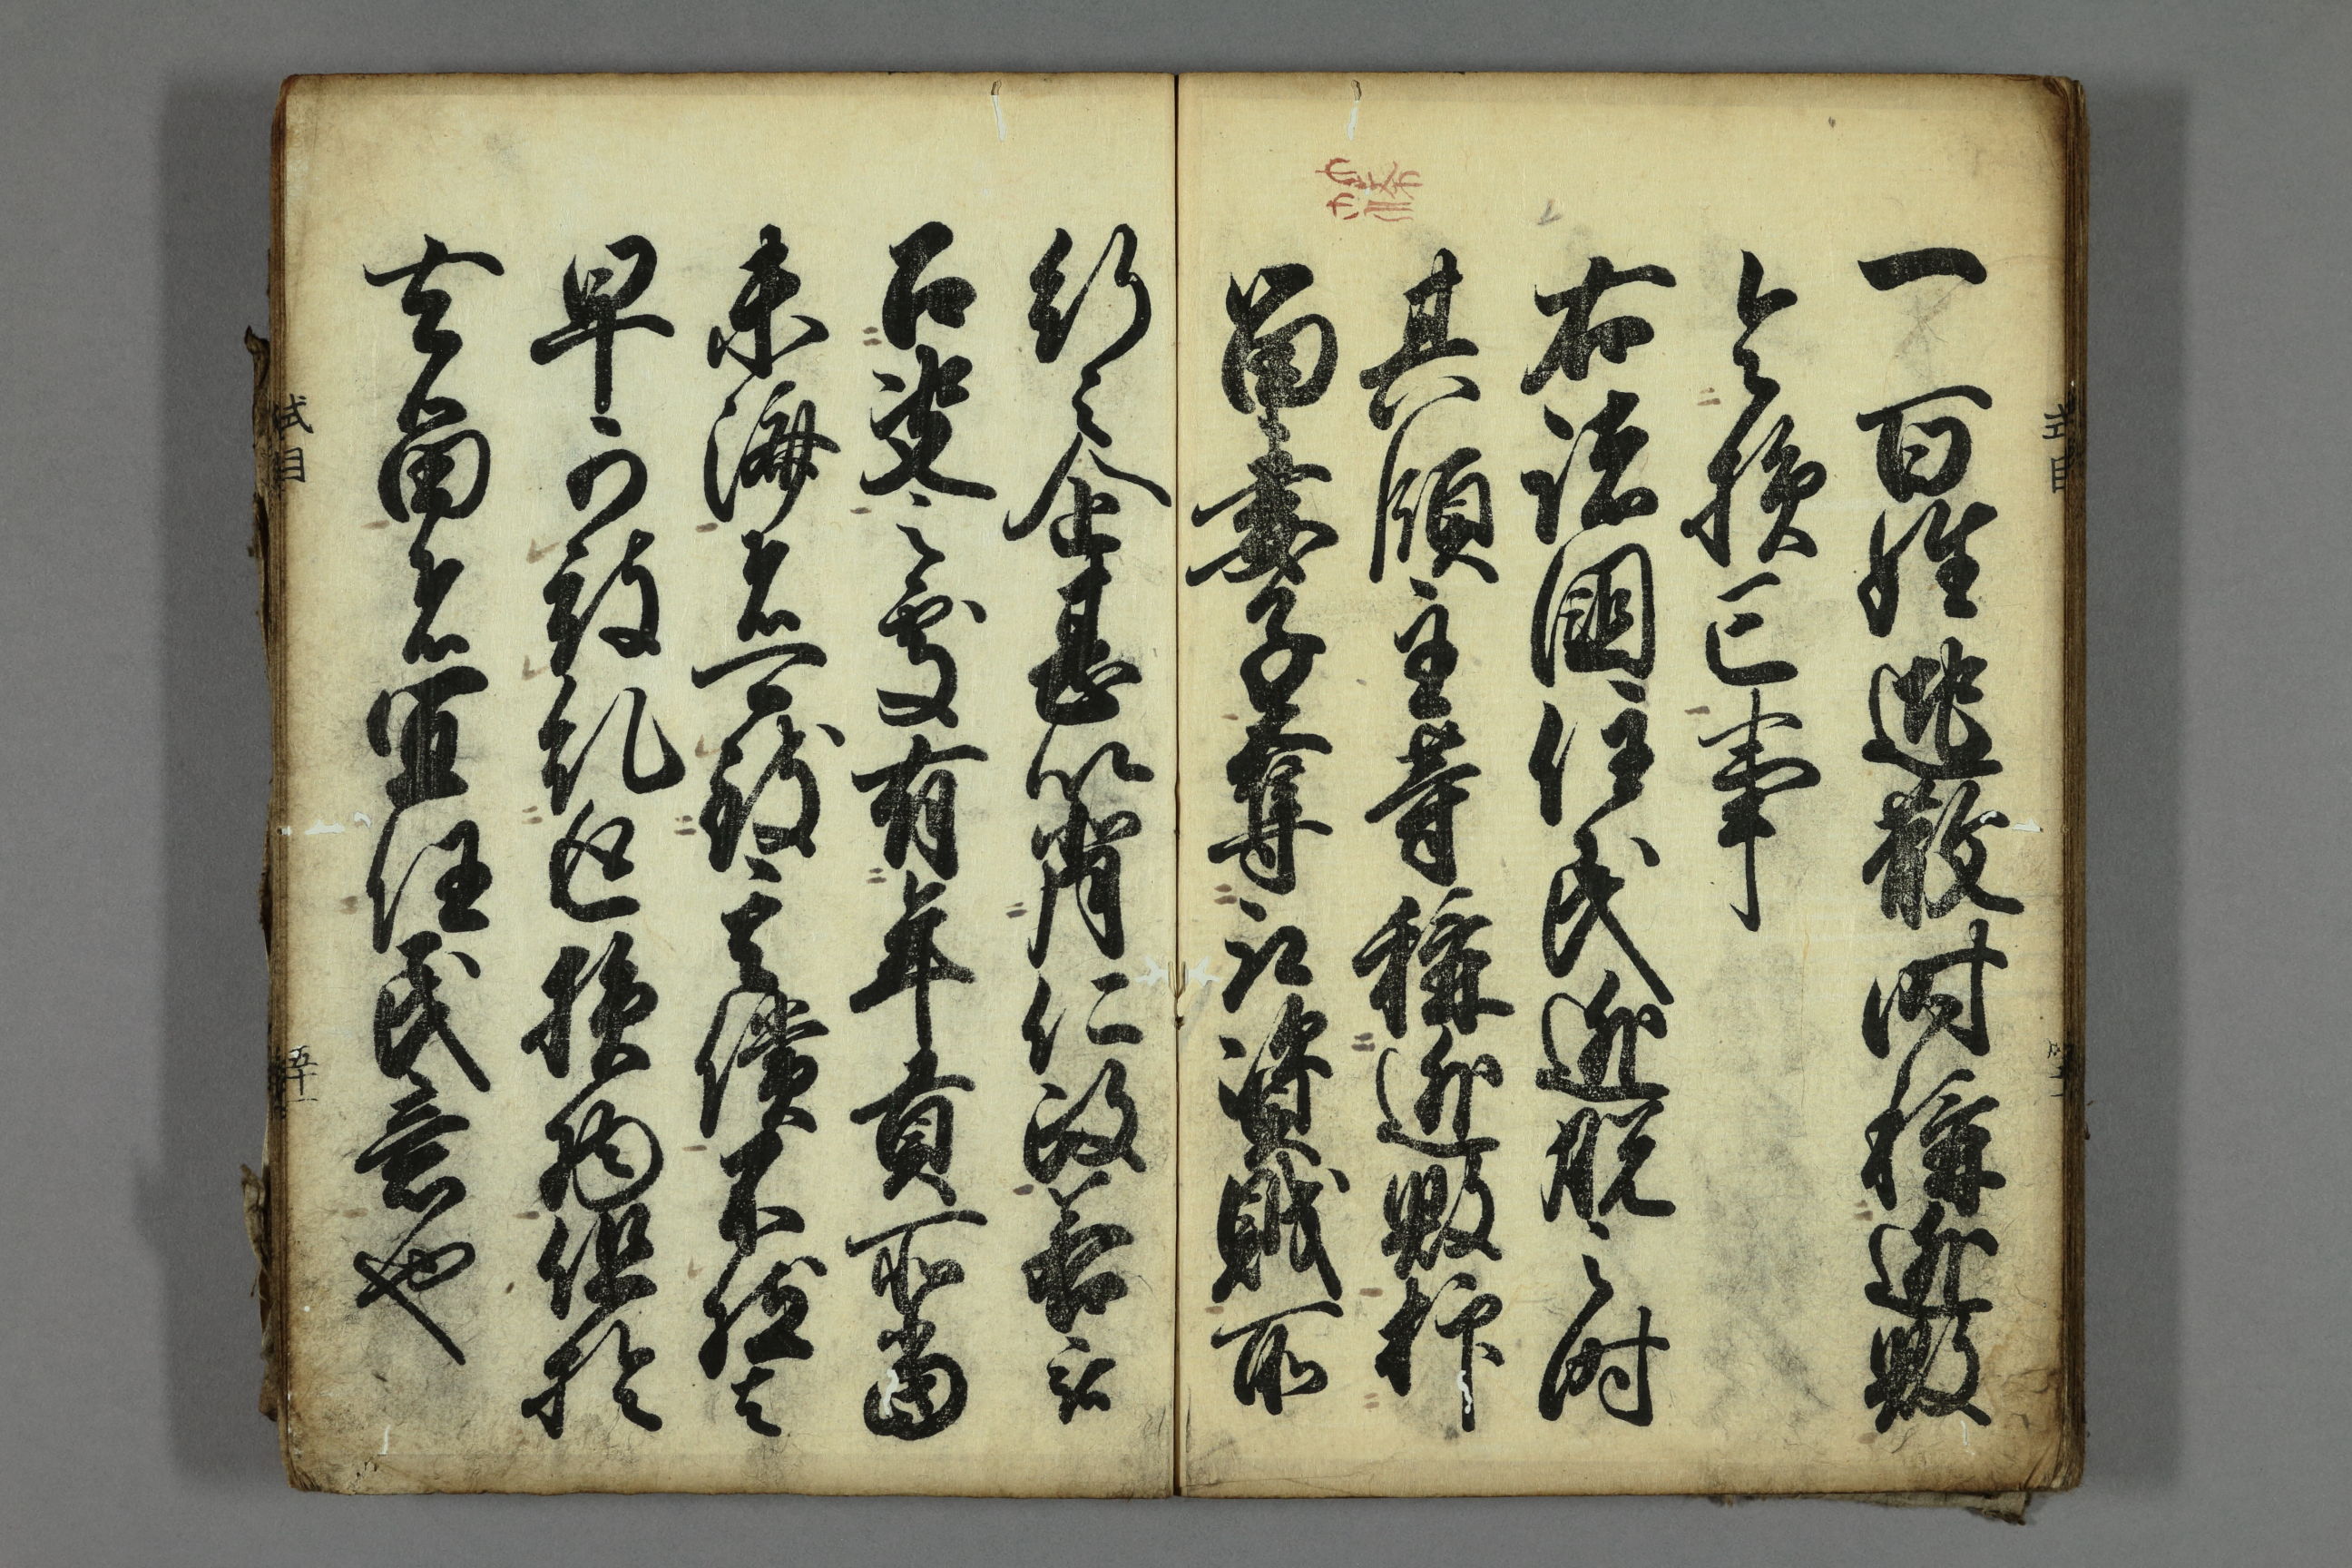 一百姓逃散時稱逃毀
令損亡事
右諸國住民逃脱之時
其領主等稱逃毀抑
留妻子奪取資財所
行之企甚背仁政若被
召決之處有年貢所當
未濟者可致其償不然者
早可被糺返損物但於
去留者宜任民意也
式目
五十一